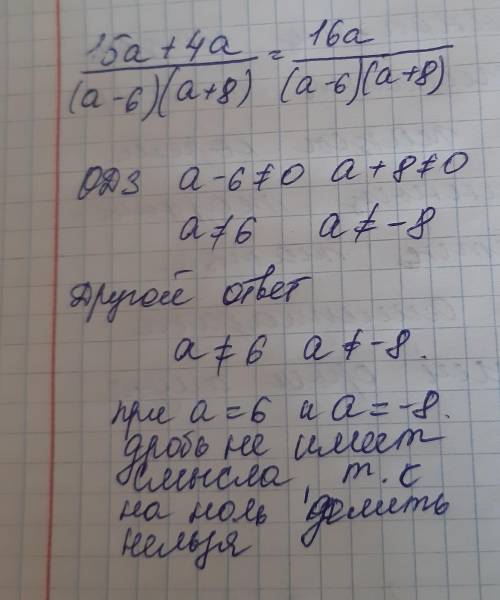 15a + 4a / (a-6)(a+8) = 16a / (a-6)(a+8)
ОДЗ a - 6 ≠ 0 a + 8 ≠ 0
a ≠ 6 a ≠ -8
Другой ответ
a ≠ 6 a ≠ -8.
при a = 6 и a = -8.
дробь не имеет
смысла, т.с
на ноль делить
нельзя